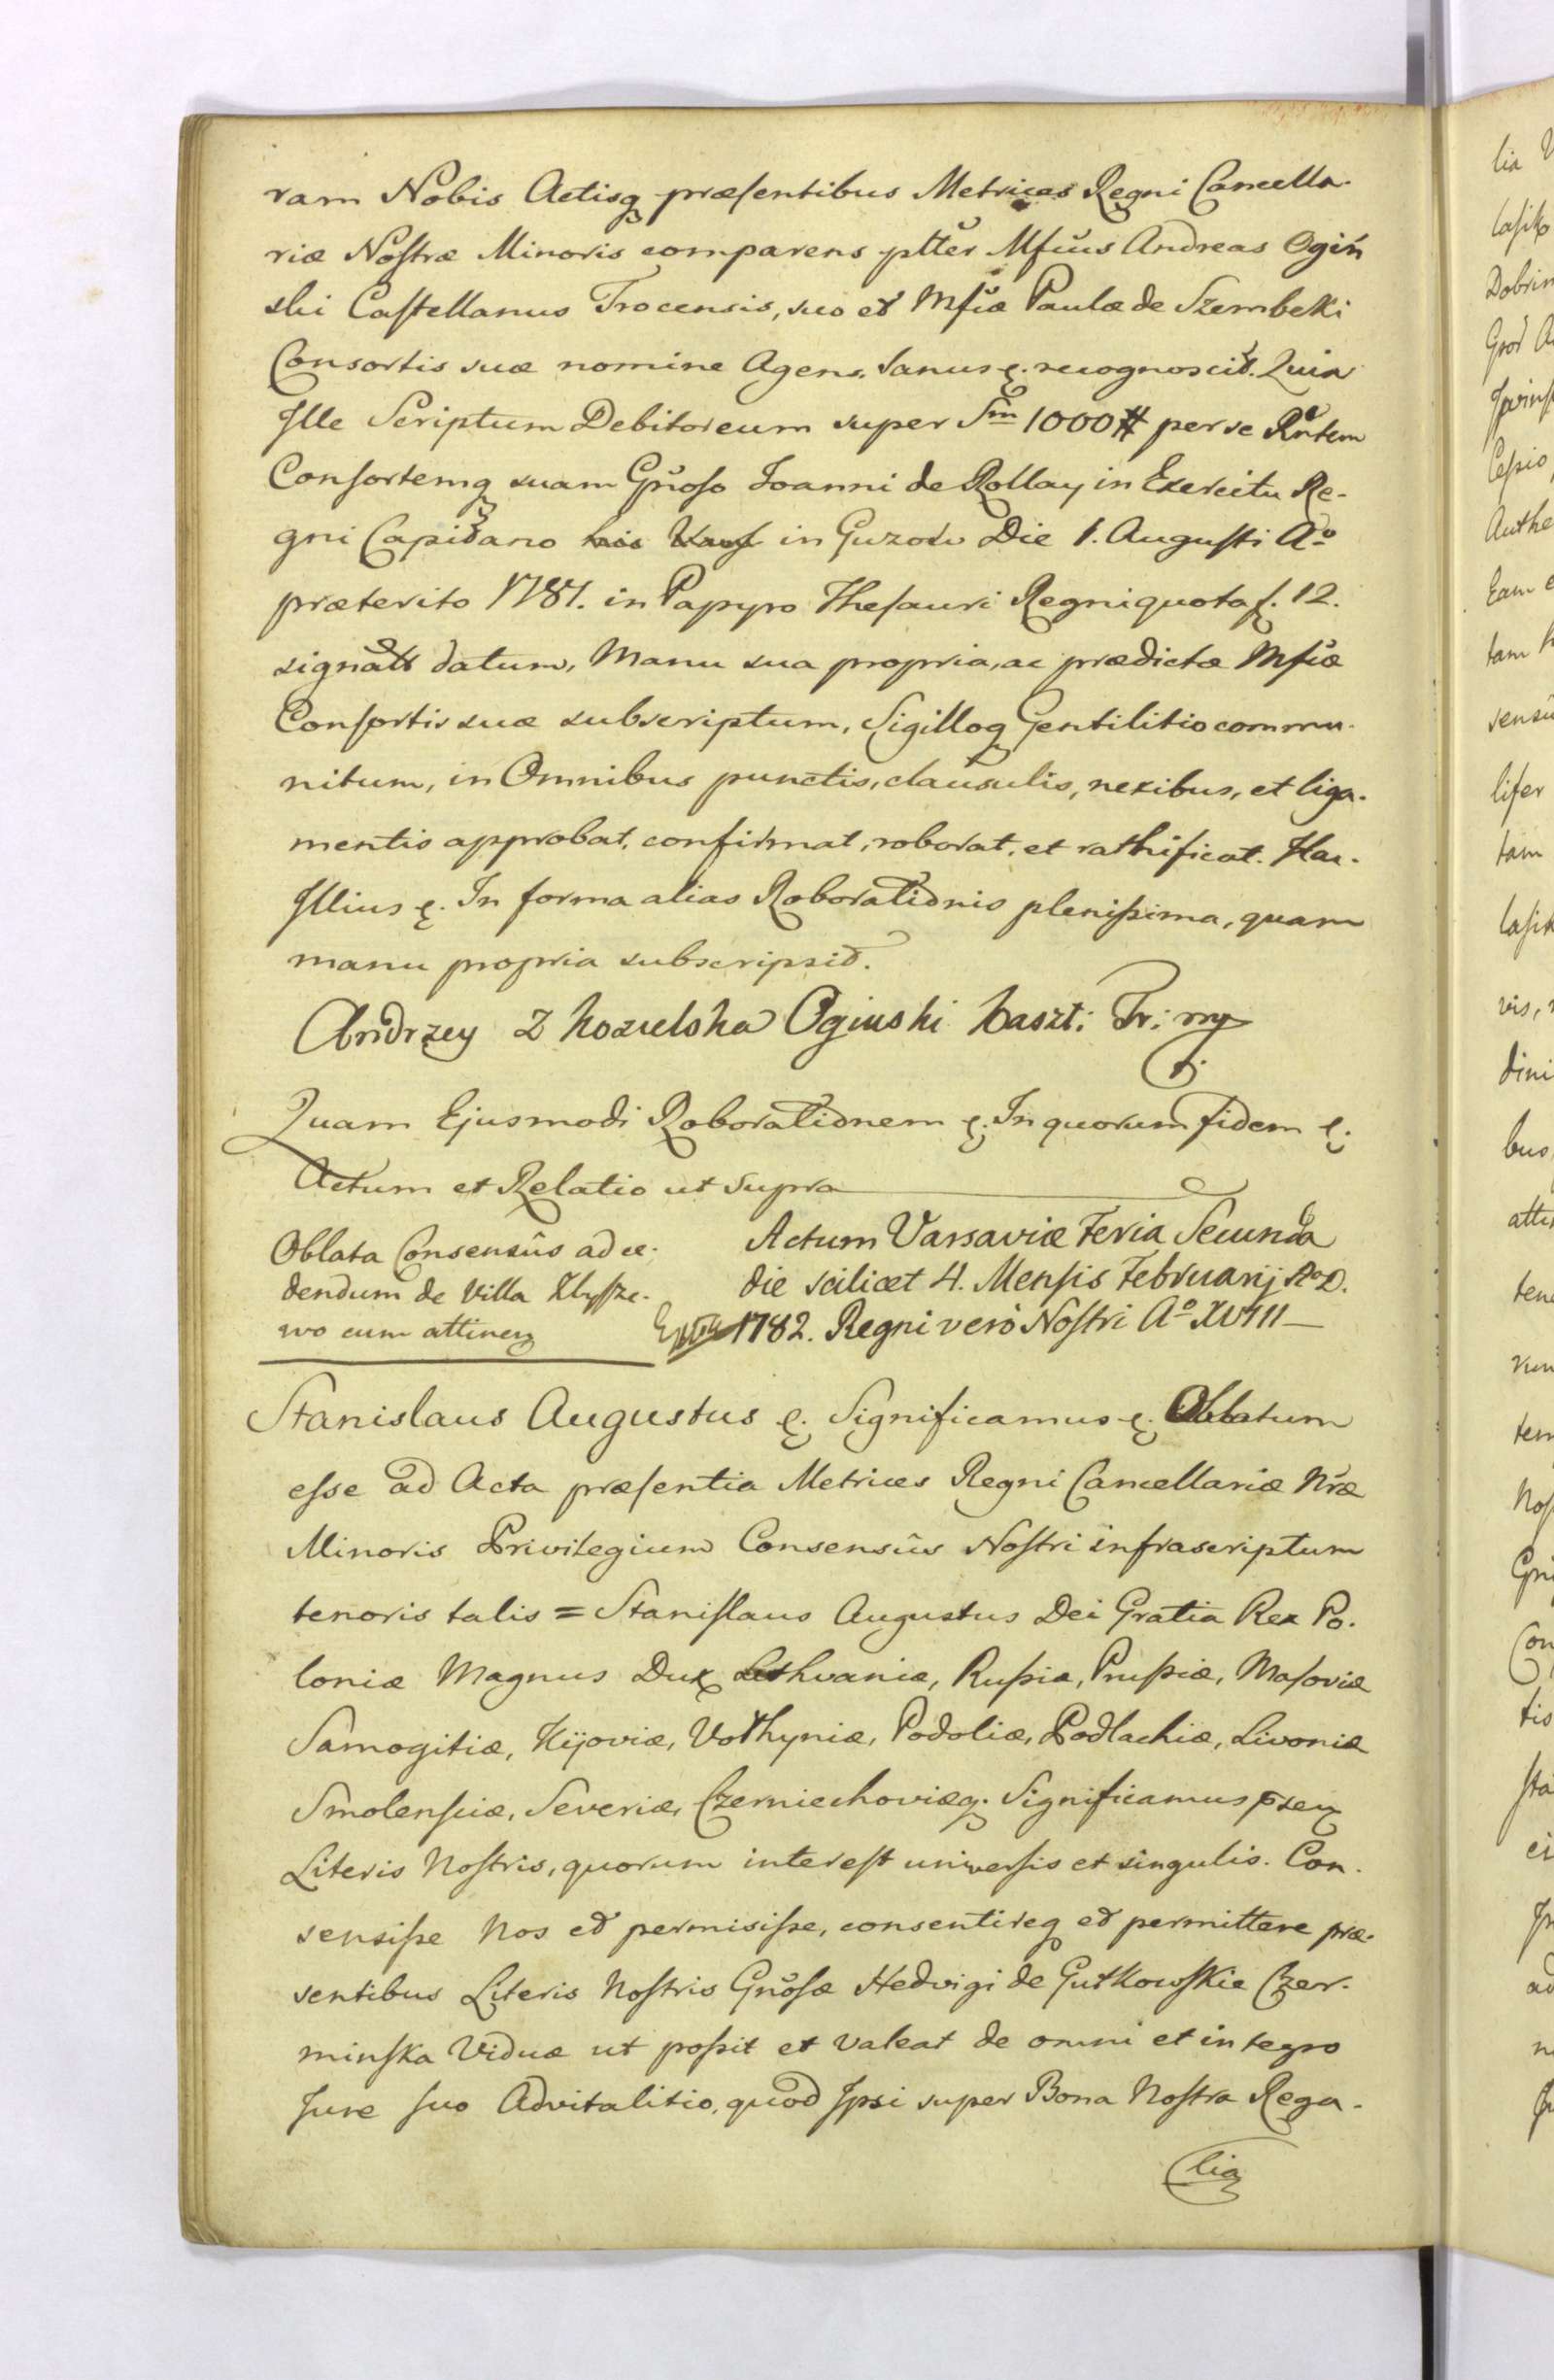 ram Nobis Actisq præsentibus Metrices Regni Cancella-
riæ Nostræ Minoris comparens pltter Mfcus Andreas Ogiń
ski Castellanus Trocensis, suo et Mfcæ Paulæ de Szembeki
Consortis suæ nomine Agens. Sanus ę. recognoscit. Quia
Ille Scriptum Debitoreum super Sm 1000 # per se Rntem
Consortemq suam Gnoso Joanni de Rollay in Exercitu Re-
gni Capitano in Guzow Die 1. Augusti Ao
præterito 1781. in Papyro Thesauri Regni quota f. 12.
signat datum, Manu sua propria, ac prædictæ Mfcæ
Consortis suæ subscriptum, Sigilloq Gentilitio commu-
nitum, in Omnibus punctis, clausulis, nexibus, et liga-
mentis approbat, confirmat, roborat, et rathificat. Hac-
Illius ę. In forma alias Roborationis plenissima, quam
manu propria subscripsit.
Andrzey z Kozielska Oginski Kaszt: Tr: mp
Quam Ejusmodi Roborationem ę. In quorum fidem ę.
Actum et Relatio ut supra
Oblata Consensûs ad ce-
dendum de Villa Klysze-
wo cum attinen
Actum Varsaviæ Feria Secunda
die scilicet 4. Mensis Februarij AoD.
1782. Regni verò Nostri Ao XVIII
Stanislaus Augustus ę. Significamus ę. Oblatum
esse ad Acta præsentia Metrices Regni Cancellariæ Nræ
Minoris Privilegium Consensûs Nostri infrascriptum
tenoris talis = Stanislaus Augustus Dei Gratia Rex Po-
loniæ Magnus Dux Lithvaniæ, Russiæ, Prussiæ, Masoviæ
Samogitiæ, Kijoviæ, Volhyniæ, Podoliæ, Podlachiæ, Livoniæ
Smolensciæ, Severiæ, Czerniechoviæq. Significamus psen
Literis Nostris, quorum interest universis et singulis. Con-
sensisse Nos et permisisse, consentireq et permittere præ-
sentibus Literis Nostris Gnosæ Hedvigi de Gutkowskie Czer-
minska Viduæ ut possit et valeat de omni et integro
Jure suo Advitalitio, quod Ipsi super Bona Nostra Rega-
lia